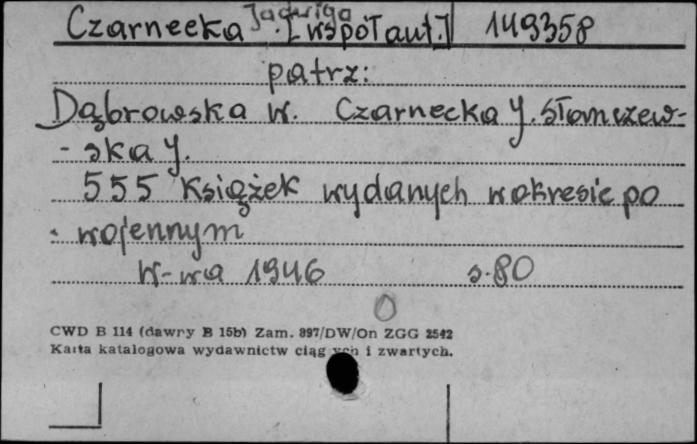 Czarnecka Jadwiga [współaut.] 149358
patrz:
Dąbrowska W. Czarnecka J. Słomczew-
-ska J.
555 Książek wydanych w okresie po
wojennym
W-wa 1946 s.80
CWD B 114 (dawry B 15b) Zam. 897/DW/On ZGG 2542
Karta katalogowa wydawnictw ciąg ych i zwartych.